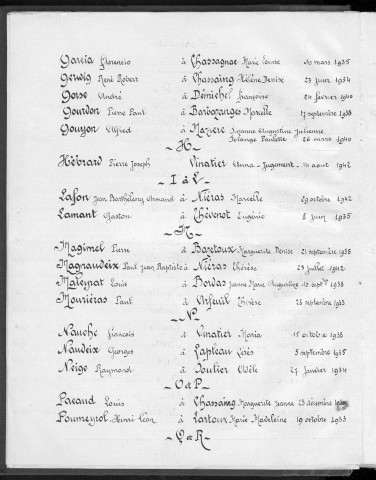 Garcia Florencio à Chassagnac Marie Jeanne 26 mars 1935
Gerwig René Robert à Chassaing Hélène Denise 23 juin 1934
Gorse André à Démichel Françoise 24 février 1940
Gourdon Pierre Paul à Barbazanges Marcelle 17 septembre 1938
Goujon Alfred à Mazière Suzanne Augustine Julienne
Solange Paulette 26 mars 1940
- H -
Hébrard Pierre Joseph Vinatier Anna - Jugement - août 1942
- I à L -
Lafon Jean Barthélemy Armand à Niéras Marcelle 29 octobre 1942
Lamant Gaston à Chèvenot Eugénie 8 juin 1935
- M -
Magimel Pierre à Bazetoux Marguerite Denise 21 septembre 1938
Magnaudeix Paul Jean Baptiste à Niéras Thérèse 23 juillet 1942
Maleyrat Louis à Bordas Jeanne Marie Augustine 10 septbre 1938
Mouriéras Paul à Orfeuil Thérèse 26 septembre 1933
- N -
Nauche François à Vinatier Maria 15 octobre 1938
Naudeix Georges à Lapleau 5 septembre 1935
Neige Raymond à Soulier Adèle 27 janvier 1934
- O et P -
Paraud Louis à Chassaing Marguerite Jeanne 23 décembre
Poumeyrol Henri Léon à Lartoux Marie Madeleine 19 octobre 1933
- Q et R -